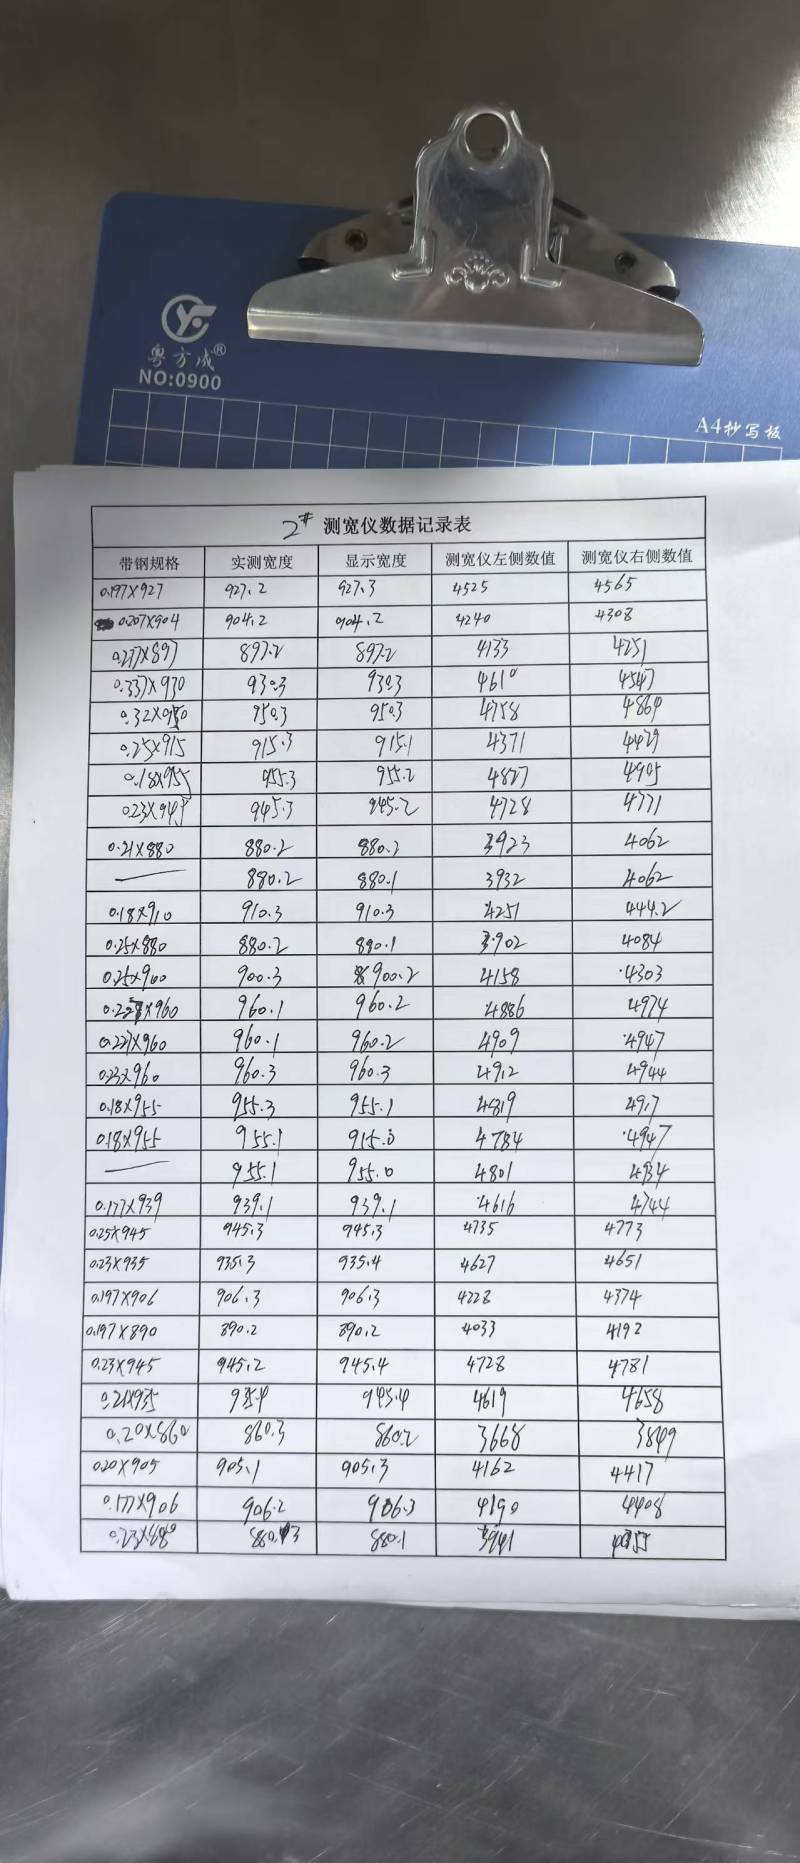 粤方成®
NO:0900
A4抄写板
2# 测宽仪数据记录表
带钢规格 实测宽度 显示宽度 测宽仪左侧数值 测宽仪右侧数值
0.197×927 927.2 927.3 4525 4565
0.207×904 904.2 904.2 4240 4308
0.217×897 897.2 897.2 4133 4251
0.337×930 930.3 930.3 4610 4547
0.32×950 950.3 950.3 4758 4864
0.25×915 915.3 915.1 4371 4429
0.18×955 955.3 955.2 4827 4905
0.23×945 945.3 945.2 4728 4771
0.21×880 880.2 880.2 3923 4062
— 880.2 880.1 3932 4062
0.18×910 910.3 910.3 4251 444.2
0.25×880 880.2 880.1 3902 4084
0.25×960 900.3 900.2 4158 4303
×960 960.1 960.2 4886 4974
0.227×960 960.1 960.2 4909 4947
0.23×960 960.3 960.3 4912 4944
0.18×955 955.3 955.1 4819 4917
0.18×955 955.1 915.0 4784 4947
— 955.1 955.0 4801 4934
0.177×939 939.1 939.1 4616 4744
0.25×945 945.3 945.3 4735 4773
0.23×935 935.3 935.4 4627 4651
0.197×906 906.3 906.3 4228 4374
0.197×890 890.2 890.2 4033 4192
0.23×945 945.2 945.4 4728 4781
0.21×935 935.4 945.4 4619 4658
0.20×860 860.3 860.2 3668 3849
0.20×905 905.1 905.3 4162 4417
0.177×906 906.2 906.3 4190 4408
0.23×880 880.1